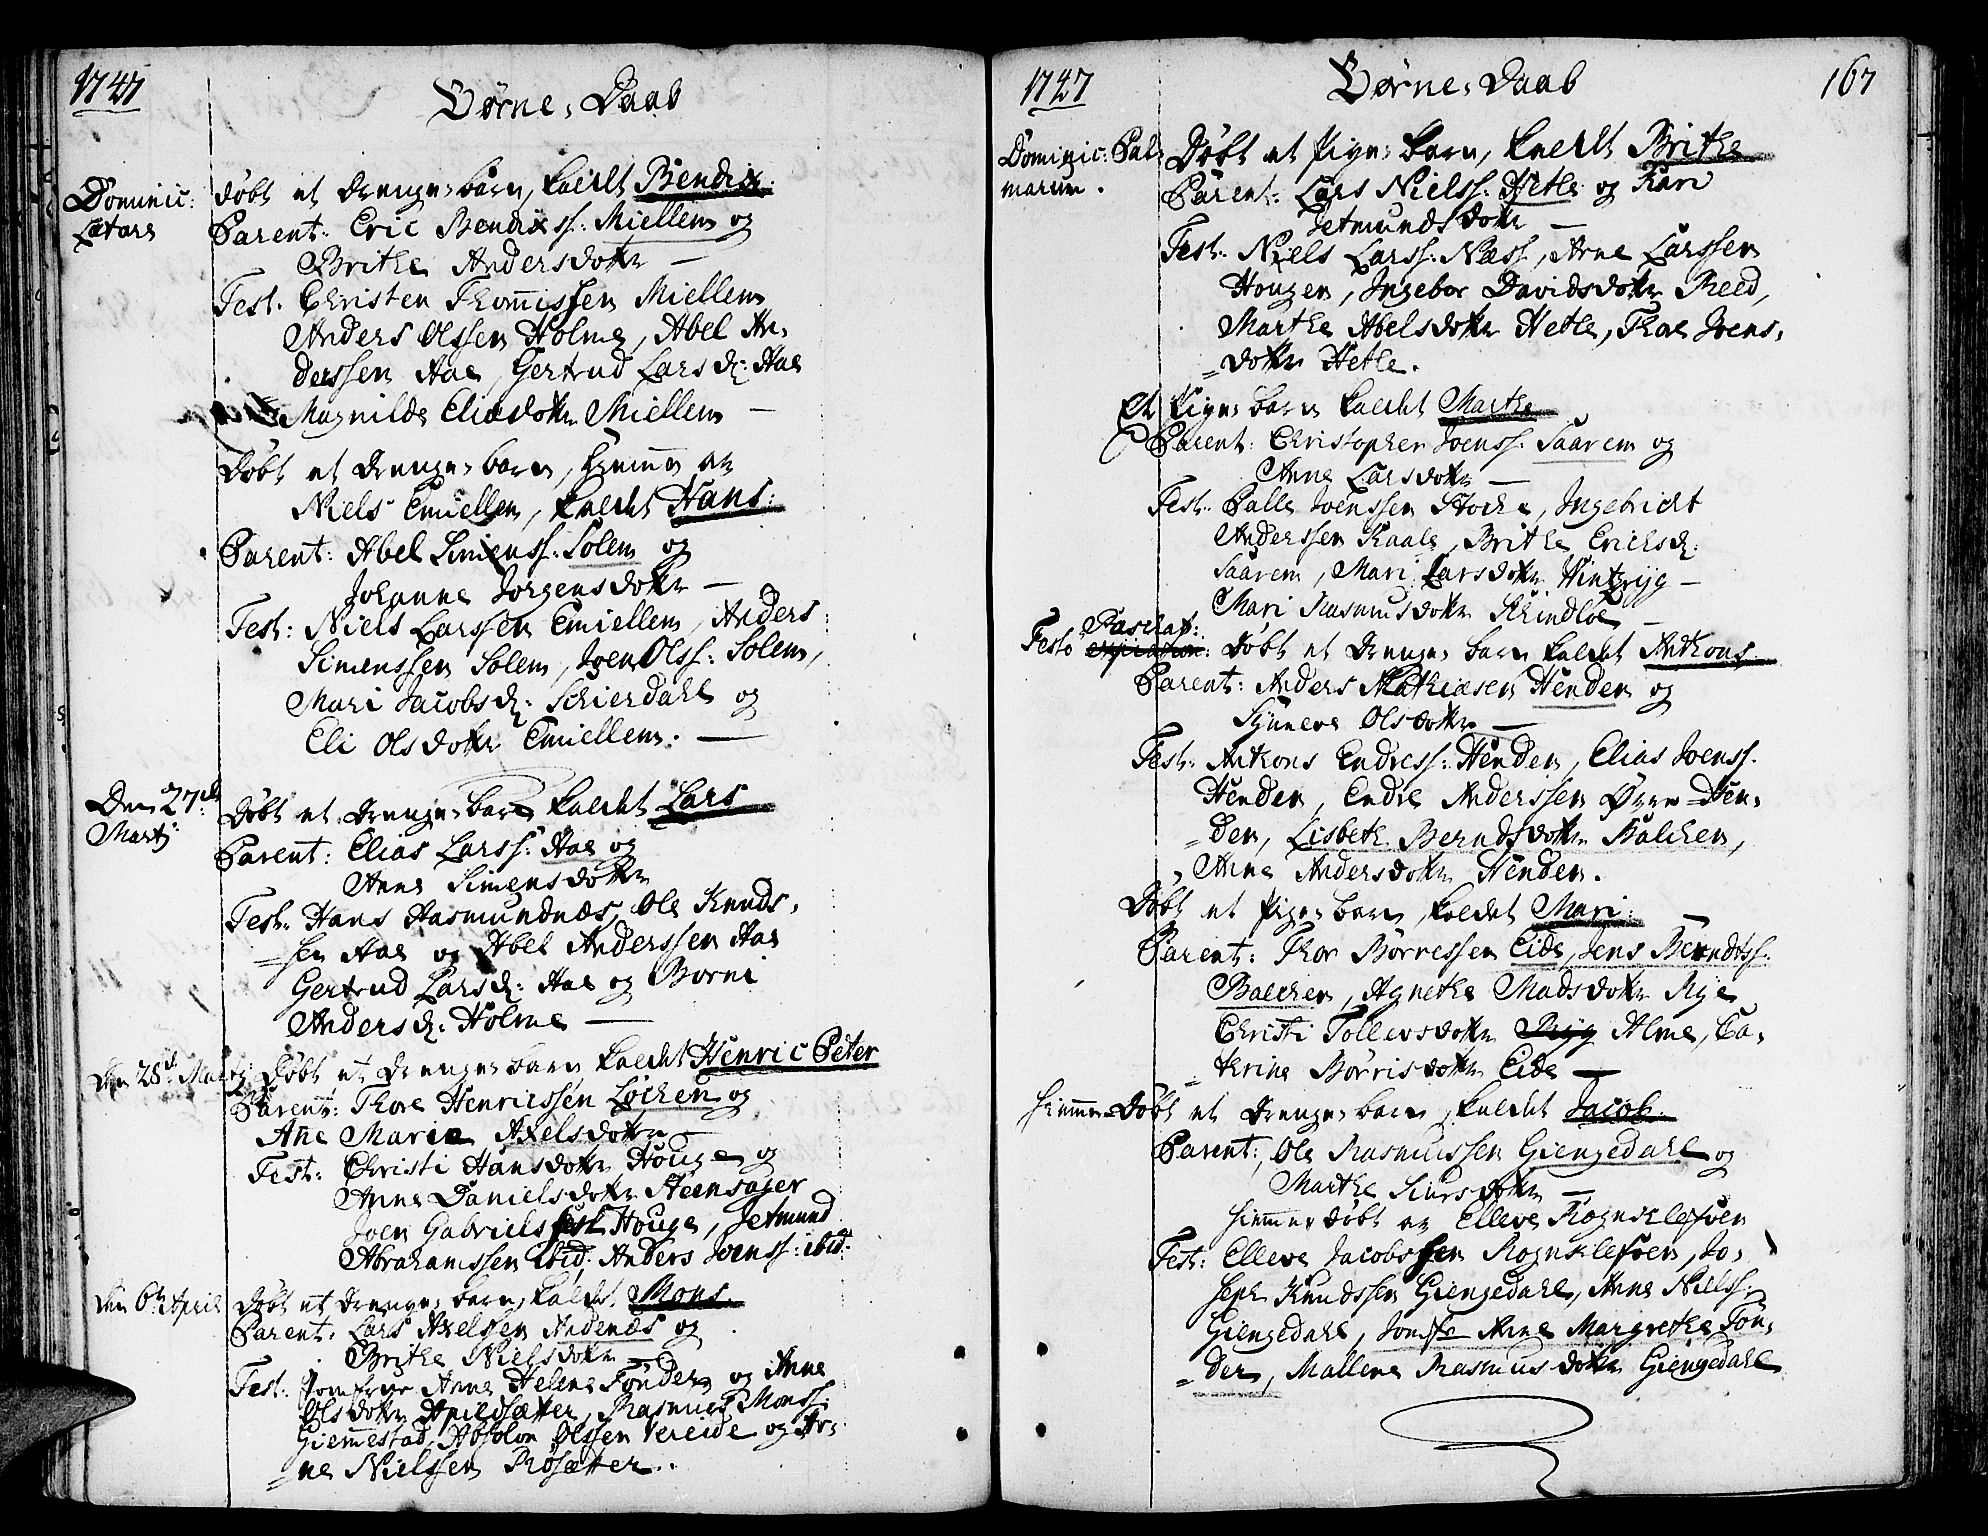 1747
Børne, Daab
Dominic:
Lætare
døbt et drenge barn, kaldt Bendix.
Parent: Eric Bendixs: Miellem og
Brithe Andersdottr —
Test: Christen Thomissen Miellem
Anders Olssen Holme, Abel An,
derssen Aae, Gertrud Larsd: Aae
Magnilde Eliædottr Miellem —
Døbt et drenge barn, hiemme av
Niels Emiellem, kaldet Hans:
Parent: Abel Simenss: Solem og
Johanne Jorgensdottr —
Test: Niels Larssen Emiellem, Anders
Simenssen Solem, Joen Olss: Solem,
Mari Jacobsd: Schierdahl og
Eli Olsdottr Emiellem. —
Den 27de
Martj
Døbt et drenge barn kaldet Lars
Parent: Elias Larss: Aae og
Anne Simensdottr
Test: Hans Aasmundnæs, Ole Knuds,
sen Aae og Abel Anderssen Aae
Gertrud Larsd: Aae og Borni
Andersd: Holme —
Den 28de Martj: Døbt et drenge barn kaldet Henric Peter
Parent: Thore Henricssen Lochen og
Aне Marie Axelsdottr —
Test: Christi Hansdottr Houge og
Anne Danielsdottr Steensager
Joen Gabriels Houge, Jetmund
Abrahamssen ibid: Anders Joenss: ibid:
Den 6te April døbt et drenge barn, kaldet Mons.
Parent: Lars Axelssen Andenæs og
Brithe Nielsdottr —
Test: Jomfrue Anne Helene Fønder og Anne
Olsdottr Apildsætter, Rasmus Monss:
Giemmestad, Absolon Olssen Vereide og Ar,
ne Nielssen Røsætter.
1747
Børne, Daab
167
Dominic: Pal
marum.
Døbt et Pige barn, kaldt Brithe
Parent: Lars Nielss: Hetle og Kari
Jetmundsdottr —
Test: Niels Larss: Næss, Arne Larssen
Hougen, Ingebor Davidsdottr Reed,
Marthe Abelsdottr Hetle, Thoe Joens,
dottr Hetle.
Et Pige barn kaldet Marthe
Parent: Christopher Joenss: Saarem og
Anne Larsdottr —
Test: Palle Joenssen Stoche, Ingebricht
Anderssen Kaale, Brithe Erichsd:
Saarem, Mari Larsdottr Hintzryg —
Mari Rasmusdottr Schindloe —
Paschat:
Festo døbt et drenge barn kaldet Anthons
Parent: Anders Mathiæsen Henden og
Synneve Olsdottr —
Test: Anthons Endress: Henden, Elias Joenss:
Henden, Endre Anderssen Øvre Hen,
den, Lisbeth Berndsdottr Balchen,
Anne Andersdottr Henden.
Døbt et Pige barn, kaldet Mari. —
Parent: Thor Børressen Eide, Jens Berndtss:
Balchen, Agnethe Madsdottr Rye
Christi Tollevsdottr Ryg Alme, Ca,
thrine Børrisdottr Eide —
Hiemme døbt et drenge barn, kaldet Jacob.
Parent: Ole Rasmussen Giengedahl og
Marthe Siursdottr —
hiemmedøbt av Elleve Rognklefven
Test: Elleve Jacobssen Rognklefven, Jo,
seph Knudssen Giengedahl, Anne Nielss:
Giengedahl, Jomfr Anne Margrethe Fon,
der, Mallene Rasmusdottr Giengedahl